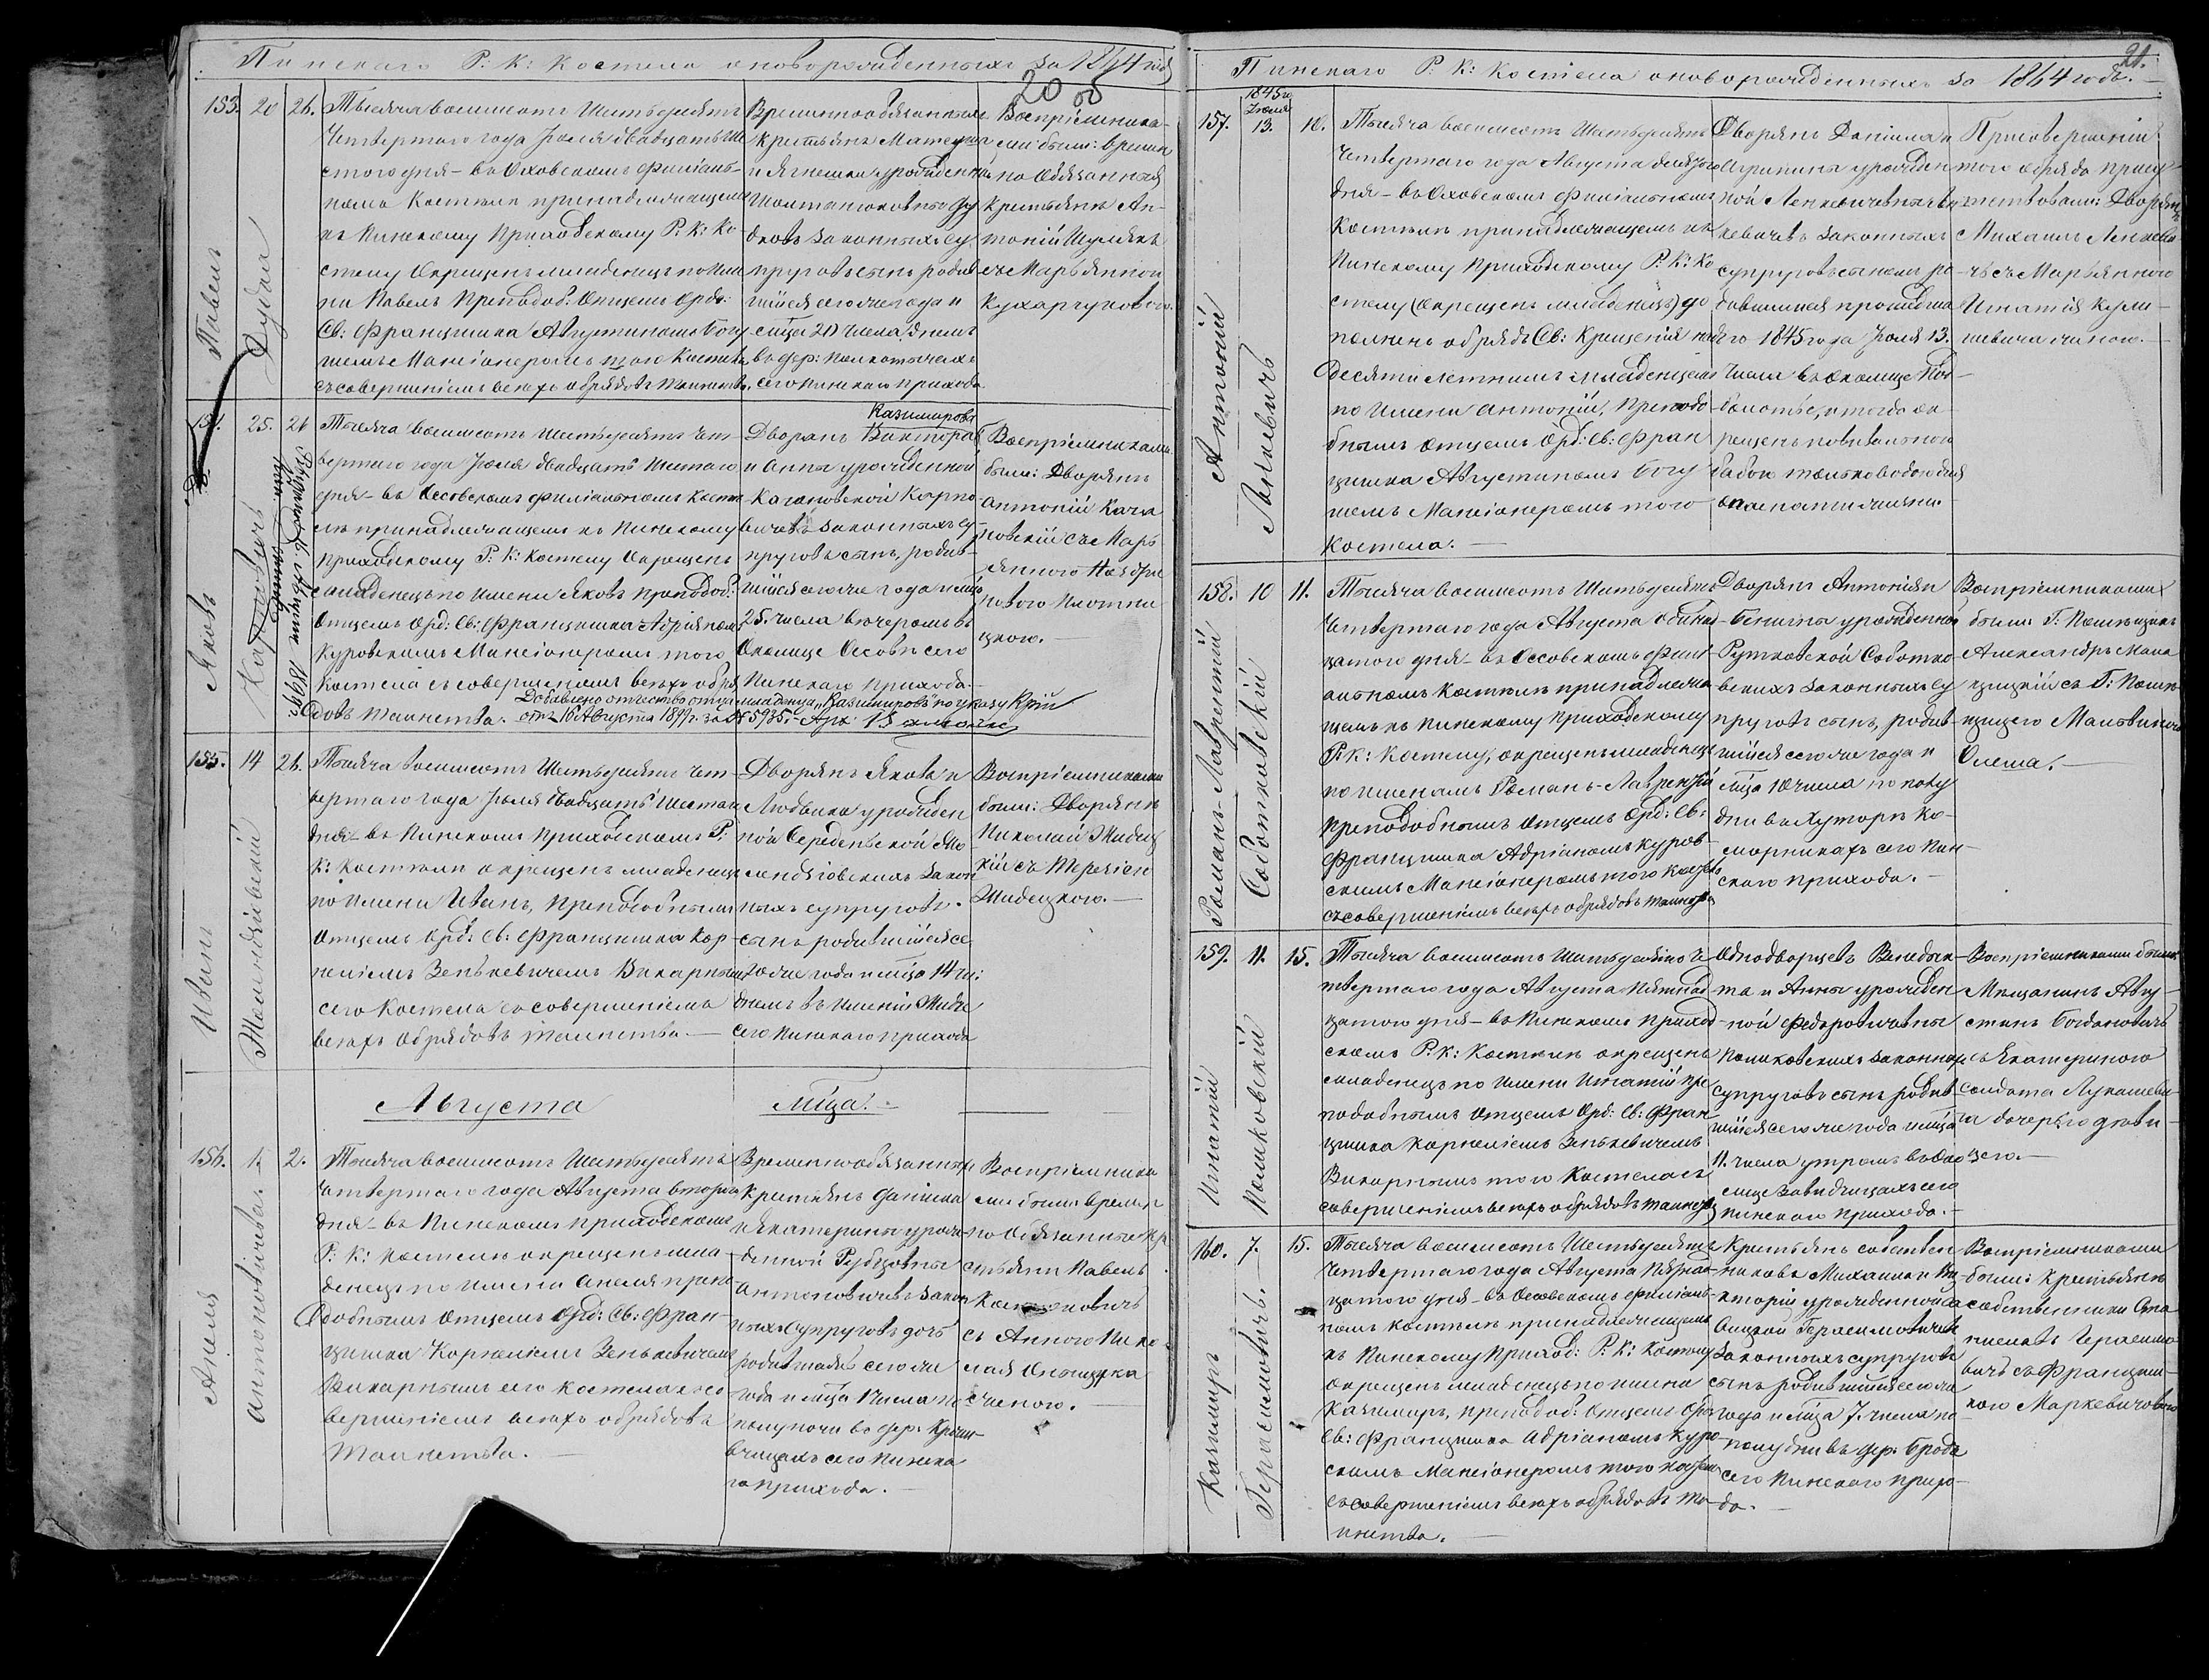 Пинскаго Р. К: Костела о новорожденныхъ за 1864 годъ
20
153. 20 26.
Павелъ
Дудка
Тысяча восимсотъ Шестьдесятъ
Четвертого года Іюля двадцать Ше
стого дня – въ Оховскомъ филіаль-
номъ Костелѣ принадлежащемъ
къ Пинскому Приходскому Р. К: Ко-
стелу Окрещенъ младенецъ по Име
ни Павелъ Преподоб: Отцемъ Орд:
Св: Францишка Августиномъ Богу
шемъ Мансіонеромъ того Костела
съ совершеніемъ всехъ обрядовъ Таинства.
Временнообязанныхъ
Крестьянъ Матеуша
и Агнешки урожденной
законныхъ Су
пруговъ сынъ родив
шійся сего же года и
м-ца 20 числа днемъ
въ дер:
сего Пинскаго прихода
Воспріемника-
ми были: Времен
но Обязанный
Крестьянинъ Ан-
тоній Шуляк
съ Маріянною
Кухарчуковою.
154. 25. 26
Яковъ
Тысяча восимсотъ Шестьдесятъ Чет-
вертого года Іюля двадцать Шестаго
дня – въ Оссовскомъ филіальномъ Косте
лѣ принадлежащемъ къ Пинскому
Приходскому Р. К: Костелу Окрещенъ
младенецъ по имени Яковъ Преподоб:
Отцемъ Орд: Св: Францишка Адріяномъ
Куровскимъ Мансіонеромъ того
Костела съ совершеніемъ всехъ обря
довъ Таинства.
Казимирова
Дворянъ Виктора
и Анны урожденной
Качановской Карпо-
вичовъ законныхъ су-
пруговъ сынъ, родив-
шійся сего же года и м-ца
25. числа вечеромъ въ
Околице Осовѣ сего
Пинскаго прихода.
Воспріемниками
были: Дворянинъ
Антоній Кача
новскій съ Марь
янною
Добавлено отчество отца младенца „Казимировъ" по указу
отъ 16 Августа 1899 г. за № 5935.
155. 14 26.
Иванъ
Жолендзіовскій
Тысяча восимсотъ Шестьдесятъ Чет-
вертаго года Іюля двадцать Шестаго
дня – въ Пинскомъ Приходскомъ Р.
К: Костелѣ окрещенъ младенецъ
по Имени Иванъ, Преподобнымъ
Отцемъ Орд: Св: Францишка Кор-
неліемъ Зенькевичемъ Викарнымъ
сего Костела съ совершеніемъ
всехъ Обрядовъ Таинства. –
Дворянъ Якова и
Людвики урожден
ной Середенской Жо
лендзіовскихъ закон
ныхъ супруговъ.
сынъ родившійся се
го же года и м-ца 14 чи:
днемъ въ Имѣніи
сего Пинскаго прихода
Воспріемниками
были: Дворянинъ
Николай
съ Терезіею
Августа м-ца. –
156. 1. 2.
Анеля
Антоновичева.
Тысяча восимсотъ Шестьдесятъ
Четвертаго года Августа втораго
дня – въ Пинскомъ приходскомъ
Р: К: Костелѣ окрещенъ мла-
денецъ по имени Анеля препо-
добнымъ Отцемъ Орд: Св: Фран-
цишка Корнеліемъ Зенькевичемъ
Викарнымъ сего Костела съ со
вершеніемъ всехъ обрядовъ
Таинства. –
Временнообязанныхъ
Крестьянъ Даніила
и Екатерины урож-
денной Рубцовны
Антоновичевъ закон
ныхъ Супруговъ дочь
родившаяся сего же
года и м-ца 1 числа по-
полуночи въ дер.
сего Пинска
го прихода. –
Воспріемника
ми были времен
но Обязанные Кр
стьяни Павелъ
съ Анною Нико-
лая
женою. –
Пинскаго Р: К: Костела о новорожденныхъ за 1864 годъ. –
21.
157. 1845 го Іюля 13. 10.
Антоній
Ленкевичъ
Тысяча восимсотъ Шестьдесятъ
Четвертаго года Августа десятаго
дня – въ Оховскомъ филіальномъ
Костелѣ принадлежащемъ къ
Пинскому Приходскому Р. К: Ко
стелу (Окрещенъ младенецъ) до
полненъ обрядъ Св: Крещенія надъ
десяти летнимъ младенцемъ
по имени Антоній, Преподо
бнымъ Отцемъ Орд: Св: Фран
цишка Августиномъ Богу
шемъ Мансіонеромъ того
Костела. –
Дворянъ Даніила и
урожден
ной Ленкевичевны Лен
кевичевъ законныхъ
супруговъ сыномъ ро
дившимся прошедша
го 1845 года Іюля 13.
числа въ околице
и тогда ок-
рещенъ повивальною
бабою только водою для
опасности жизни.
При совершеніи
того обряда прису
тствовали: Дворянъ
Михаилъ Ленкеви
чъ съ Маріянною
Игнатія Кули-
шевича женою.
158. 10 11.
Романъ-Лаврентій
Соботковскій
Тысяча восимсотъ Шестьдесятъ
Четвертаго года Августа одинад-
цатого дня – въ Оссовскомъ фили-
альномъ Костелѣ принадлежа-
щемъ къ Пинскому приходскому
Р. К: Костелу, окрещенъ младенецъ
по именамъ Романъ-Лаврентій
Преподобнымъ Отцемъ Орд: Св:
Францишка Адріаномъ Куров-
скимъ Мансіонеромъ того Костела
съ совершеніемъ всехъ обрядовъ таинства
Дворянъ Антонія и
Бенигны урожденной
Рутковской Соботко
вскихъ законныхъ су
пруговъ сынъ, родив-
шійся сего же года и
м-ца 10 числа по полу
дни въ Хуторѣ Ко-
морникахъ сего Пин-
скаго прихода. –
Воспріемниками
были Г: Помѣщикъ
Александръ
съ Г: Помѣ-
щицею Мальвиною
Олеша. –
159. 11. 15.
Игнатій
Поликовскій
Тысяча восимсотъ Шестьдесятъ Че
твертаго года Августа Пятнад-
цатого дня – въ Пинскомъ Приход-
скомъ Р. К: Костелѣ окрещенъ
младенецъ по имени Игнатій пре
подобнымъ Отцемъ Орд: Св: Фран
цишка Корнеліемъ Зенькевичемъ
Викарнымъ того Костела съ
совершеніемъ всехъ обрядовъ таинства
Однодворцевъ Венедик-
та и Анны урожден-
ной Федоровичевны
Поликовскихъ законныхъ
супруговъ сынъ родив-
шійся сего же года и м-ца
11. числа утромъ въ Око
лице сего
Пинскаго прихода. –
Воспріемниками были:
Мещанинъ Авгу-
стинъ Богдановичъ
съ Екатериною
солдата Лукашеви-
ча дочерью девицею. –
160. 7. 15.
Казимиръ
Герасимовичъ.
Тысяча восимсотъ Шестьдесятъ
Четвертаго года Августа Пятнад
цатого дня – въ Оссовскомъ филіаль-
номъ костелѣ принадлежащемъ
къ Пинскому Приход: Р. К: Костелу
окрещенъ младенецъ по имени
Казимиръ, преподоб: Отцемъ Орд:
Св: Францишка Адріаномъ Куро-
скимъ Мансіонеромъ того костела
съ совершеніемъ всехъ обрядовъ та-
инства. –
Крестьянъ собствен
никовъ Михаила и Ви
кторіи урожденной
Герасимовичевъ
законныхъ супруговъ
сынъ родившійся сего же
года и м-ца 7. числа по
полудни въ дер: Бродѣ
сего Пинскаго прихо-
да. –
Воспріемниками
были: Крестьянинъ
собственникъ Ста
ниславъ Герасимо
вичъ съ Францишкою Маркевичовою